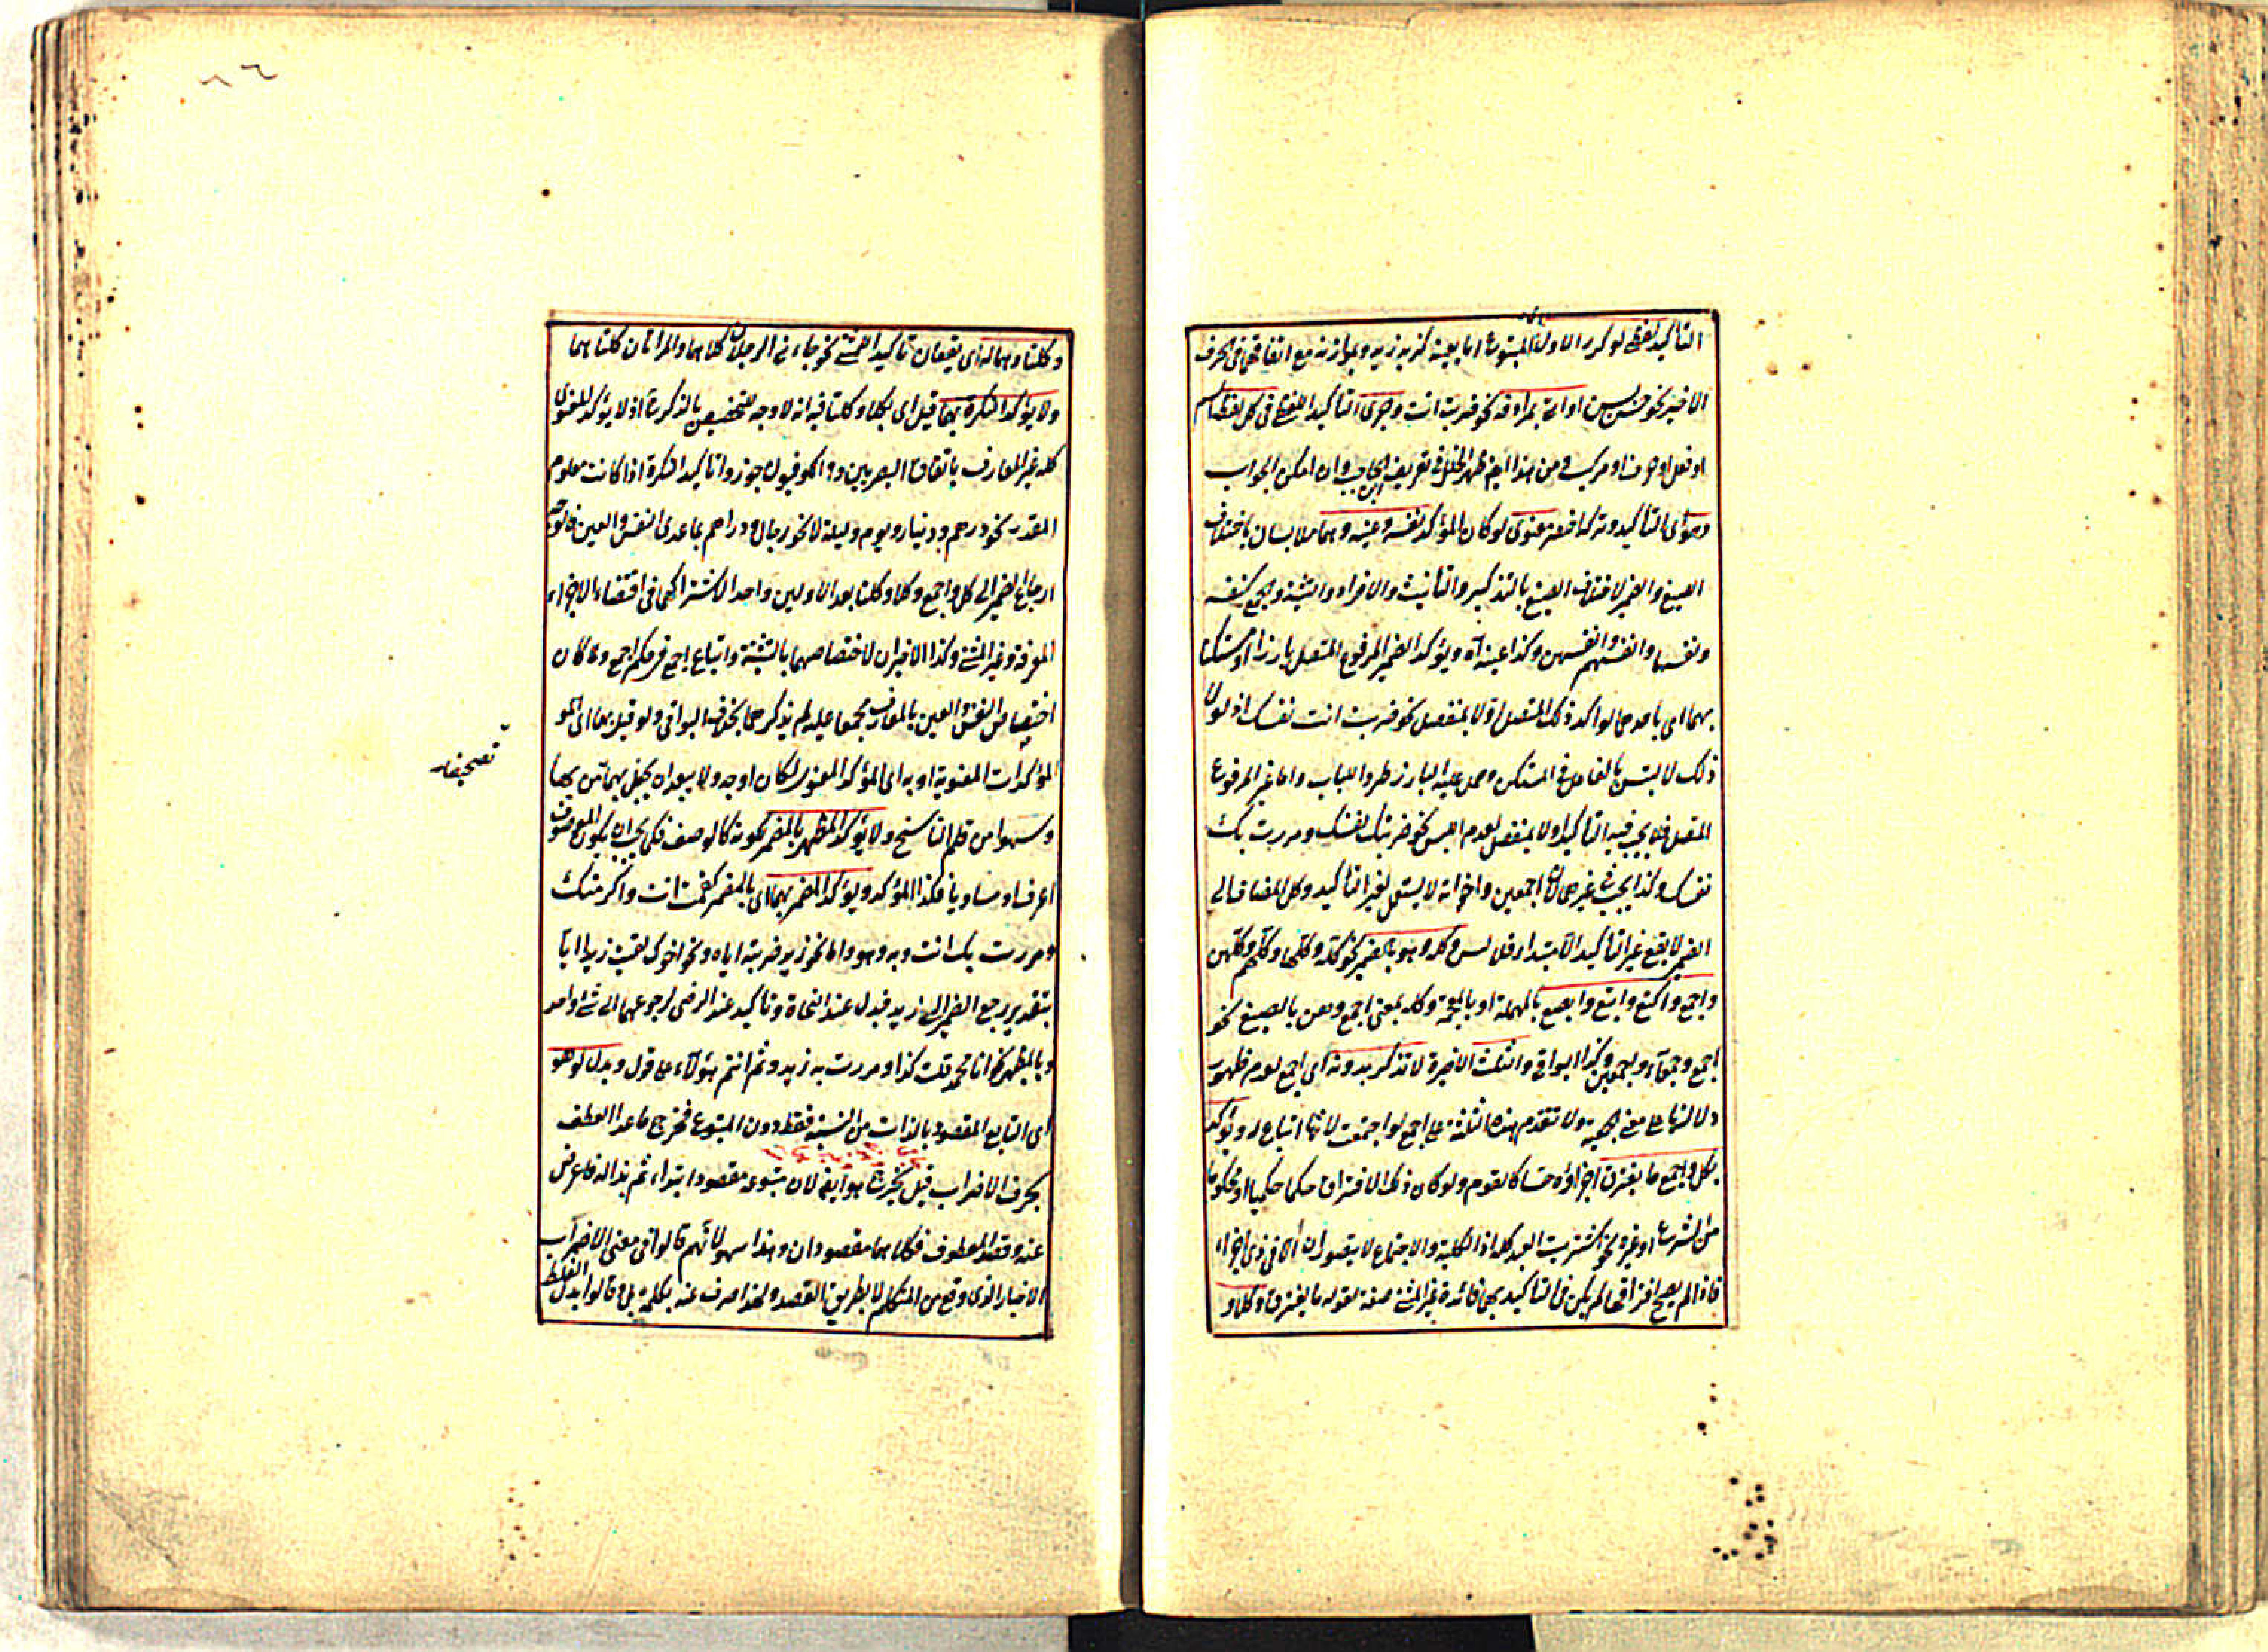 التأكيد لفظي لو كرر الاول المتبوع اما بعينه كزيد زيد وبموازنه مع اتفاقهما في الحرف
الاخير نحو حسن بسن او اتى بمرادفه نحو ضربت انت وجرى التأكيد اللفظي في كل لفظ اسم
او فعل او حرف او مركب ومن هذا ايض ظهر الخلل في تعريف ابن الحاجب وان امكن الجواب
وهو اى التأكيد معنوى لو كان المؤكد نفسه وعينه وهما ملابسان باختلاف
الصيغ والضمير لاختلاف الصيغ بالتذكير والتأنيث والافراد والتثنية والجمع كنفسه
ونفسها وانفسهم وانفسهن وكذا عينه آه ويؤكد الضمير المرفوع المتصل بارزا او مستكنا
بهما اى باحدهما لو اكد ذلك المتصل اولا بمنفصل نحو ضربت انت نفسك اذ لولا
ذلك لالتبس بالفاعل في المستكن وحمل عليه البارز طردا للباب واما غير المرفوع
المتصل فلا يجب فيه التأكيد اولا بمنفصل لعدم اللبس نحو ضربتك نفسك ومررت بك
نفسك وكذا يجب في غير لان اجمعين واخواته لا يستعمل لغير التأكيد وكل المضاف الى
الضمير لا يقع غير التأكيد الا مبتدا وكله وهو بالضمير نحو كله وكلها وكلهم وكلهن
واجمع واكتع وابتع وابصع بالمهملة او بالمعجمة وكله بمعنى اجمع وهن بالصيغ نحو
اجمع وجمعاء واجمعين وكذا البواقي والثلث الاخيرة لا تذكر بدونه اى اجمع لعدم ظهور
دلالتها على معنى الجمعية ولا تقدم هذه الثلثة على اجمع لو اجتمعت لانها اتباع له ويؤكد
بكل واجمع ما يفترق اجزاؤه حسا كالقوم ولو كان ذلك الافتراق حكما حكميا او محكوما
من الشرع او غيره نحو اشتريت العبد كله اذ الكلية والاجتماع لا يتصوران الا في ذى اجزاء
فاذا لم يصح افتراقها لم يكن في التأكيد بهما فائدة غير المثنى صفة لقوله ما يفترق وكلا و
وكلتا وهما له اى يقعان تأكيد المثنى نحو جاءنى الرجلان كلاهما والمراتان كلتاهما
ولا يؤكد النكرة بهما قيل اى بكلا وكلتا فيه انه لا وجه لتخصيص بالذكر اذ لا يؤكد المعنوى
كله غير المعارف باتفاق البصريين والكوفيون جوزوا تأكيد النكرة اذا كانت معلوم
المقدر نحو درهم ودينار ويوم وليلة لا نحو رجال ودراهم بما عدى النفس والعين
ارجاع الضمير الى كل واجمع وكلا وكلتا بعد الاولين واحد الاشتراكهما في اقتضاء الاجزاء
المعرفة وغير المثنى وكذا الاخيران لاختصاصهما بالتثنية واتباع اجمع في حكم اجمع ولما كان
اختصاص النفس والعين بالمعارف مجمعا عليه لم يذكرهما بخلاف البواقي ولو قيل بها اى
المؤكدات المعنوية او به اى المؤكد المعنوى لكان اوجه ولا يبعد ان يجعل بهما من بها
وسهوا من قلم الناسخ ولا يؤكد المظهر بالمضمر لكونه كالوصف فكما يجب ان يكون الموصوف
اعرف او مساويا فكذا المؤكد ويؤكد المضمر بهما اى بالمضمر كقمت انت واكرمتك
ومررت بك انت وبه وهو واما نحو زيد ضربته اياه ونحو اخوك لقيت زيدا ايا
بتقدير رجع الضمير الى زيد فبدل عند النحاة وتأكيد عند الرضى لرجوعهما الى شئ واحد
وبالمظهر نحو انا محمد قلت كذا ومررت به زيد وثم انتم هؤلاء على قول وبدل لو هو
اى التابع المقصود بالذات من النسبة فقط دون المتبوع فخرج ما عدا العطف
بحرف الاضراب قيل يخرج هو ايض لان متبوعه مقصود ابتداء ثم بدا له فاعرض
عنه وقصد المعطوف فكلاهما مقصودان وهذا سهو لانهم قالوا في معنى الاضراب
الاخبار الذى وقع من المتكلم لا بطريق القصد ولهذا صرف عنه بكلمة بل وقالوا بدل الغلط